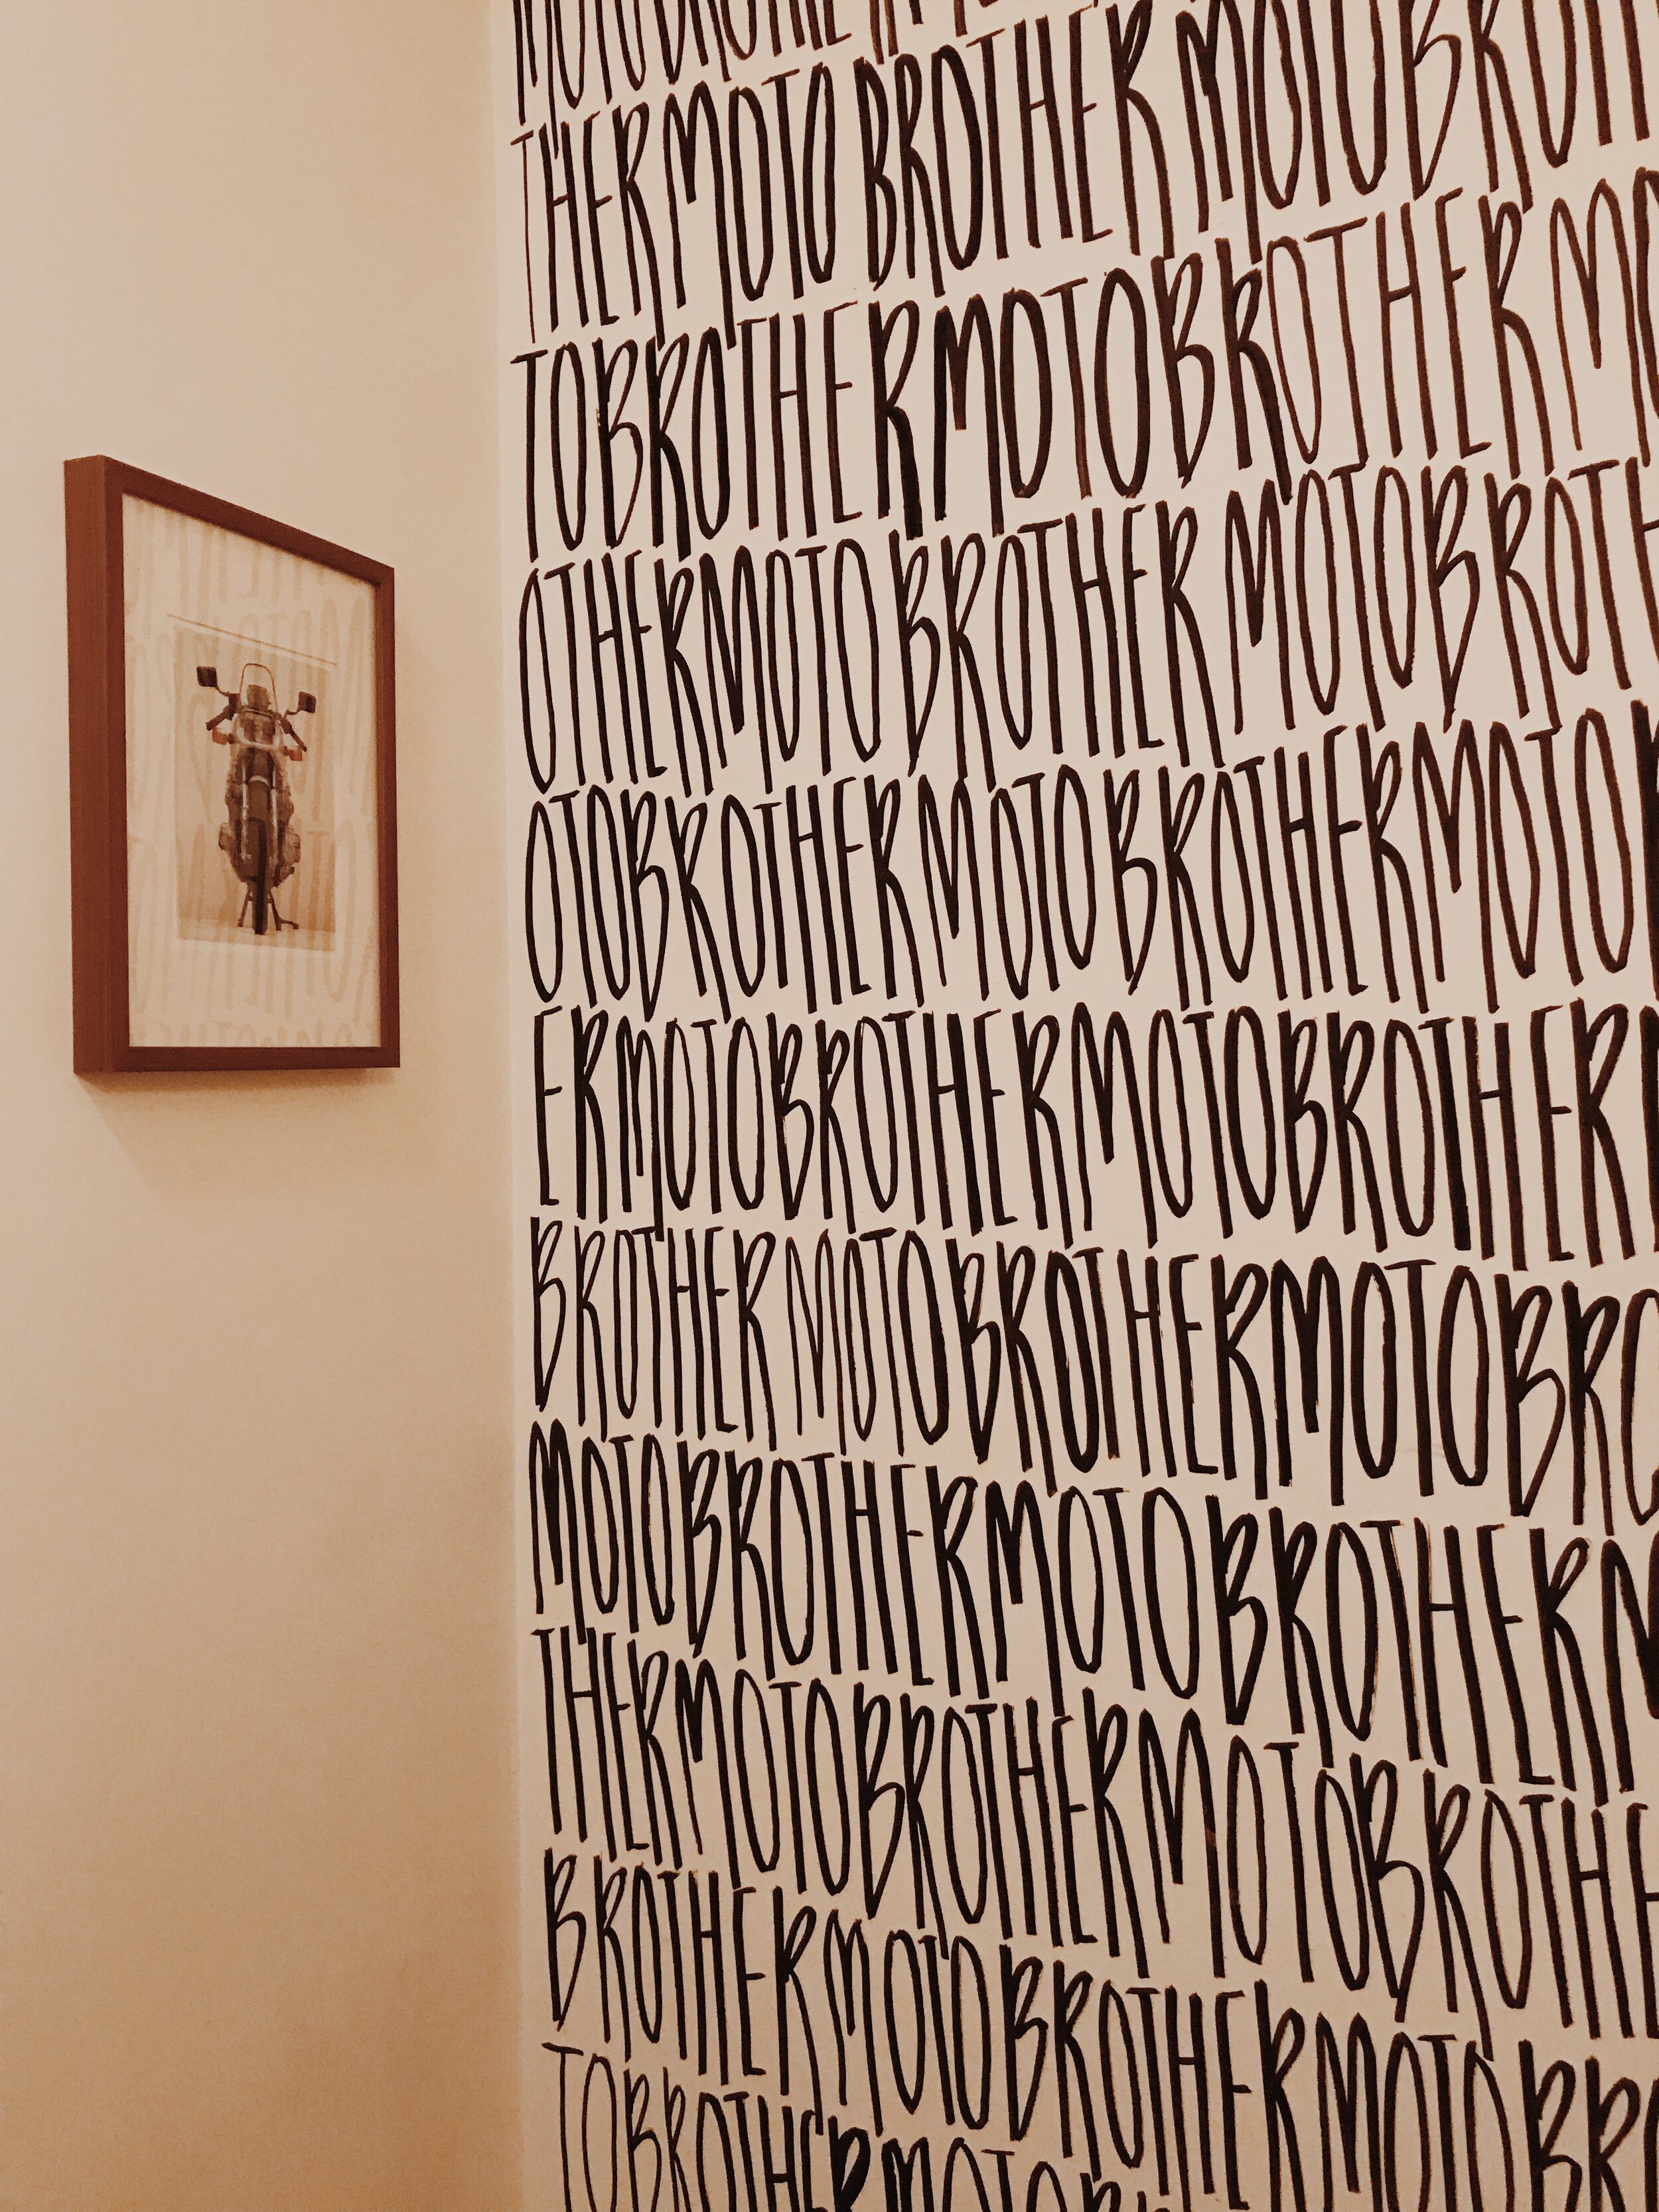 MOTOBROTHE
THERMOTO BROTHER MOTOBROTH
TOBROTHERMOTOBROTHER MO
OTHERMOTOBROTHER MOTOBROTH
OTOBROTHERMOTOBROTHERMOTO
ERMOTOBROTHERMOTOBROTHER
BROTHERMOTOBROTHERMOTOBRO
MOTOBROTHERMOTOBROTHERM
THERMOTOBROTHERMOTOBROTHE
BROTHERMOTOBROTHERMOTOBRO
TOBROTHERMOTO